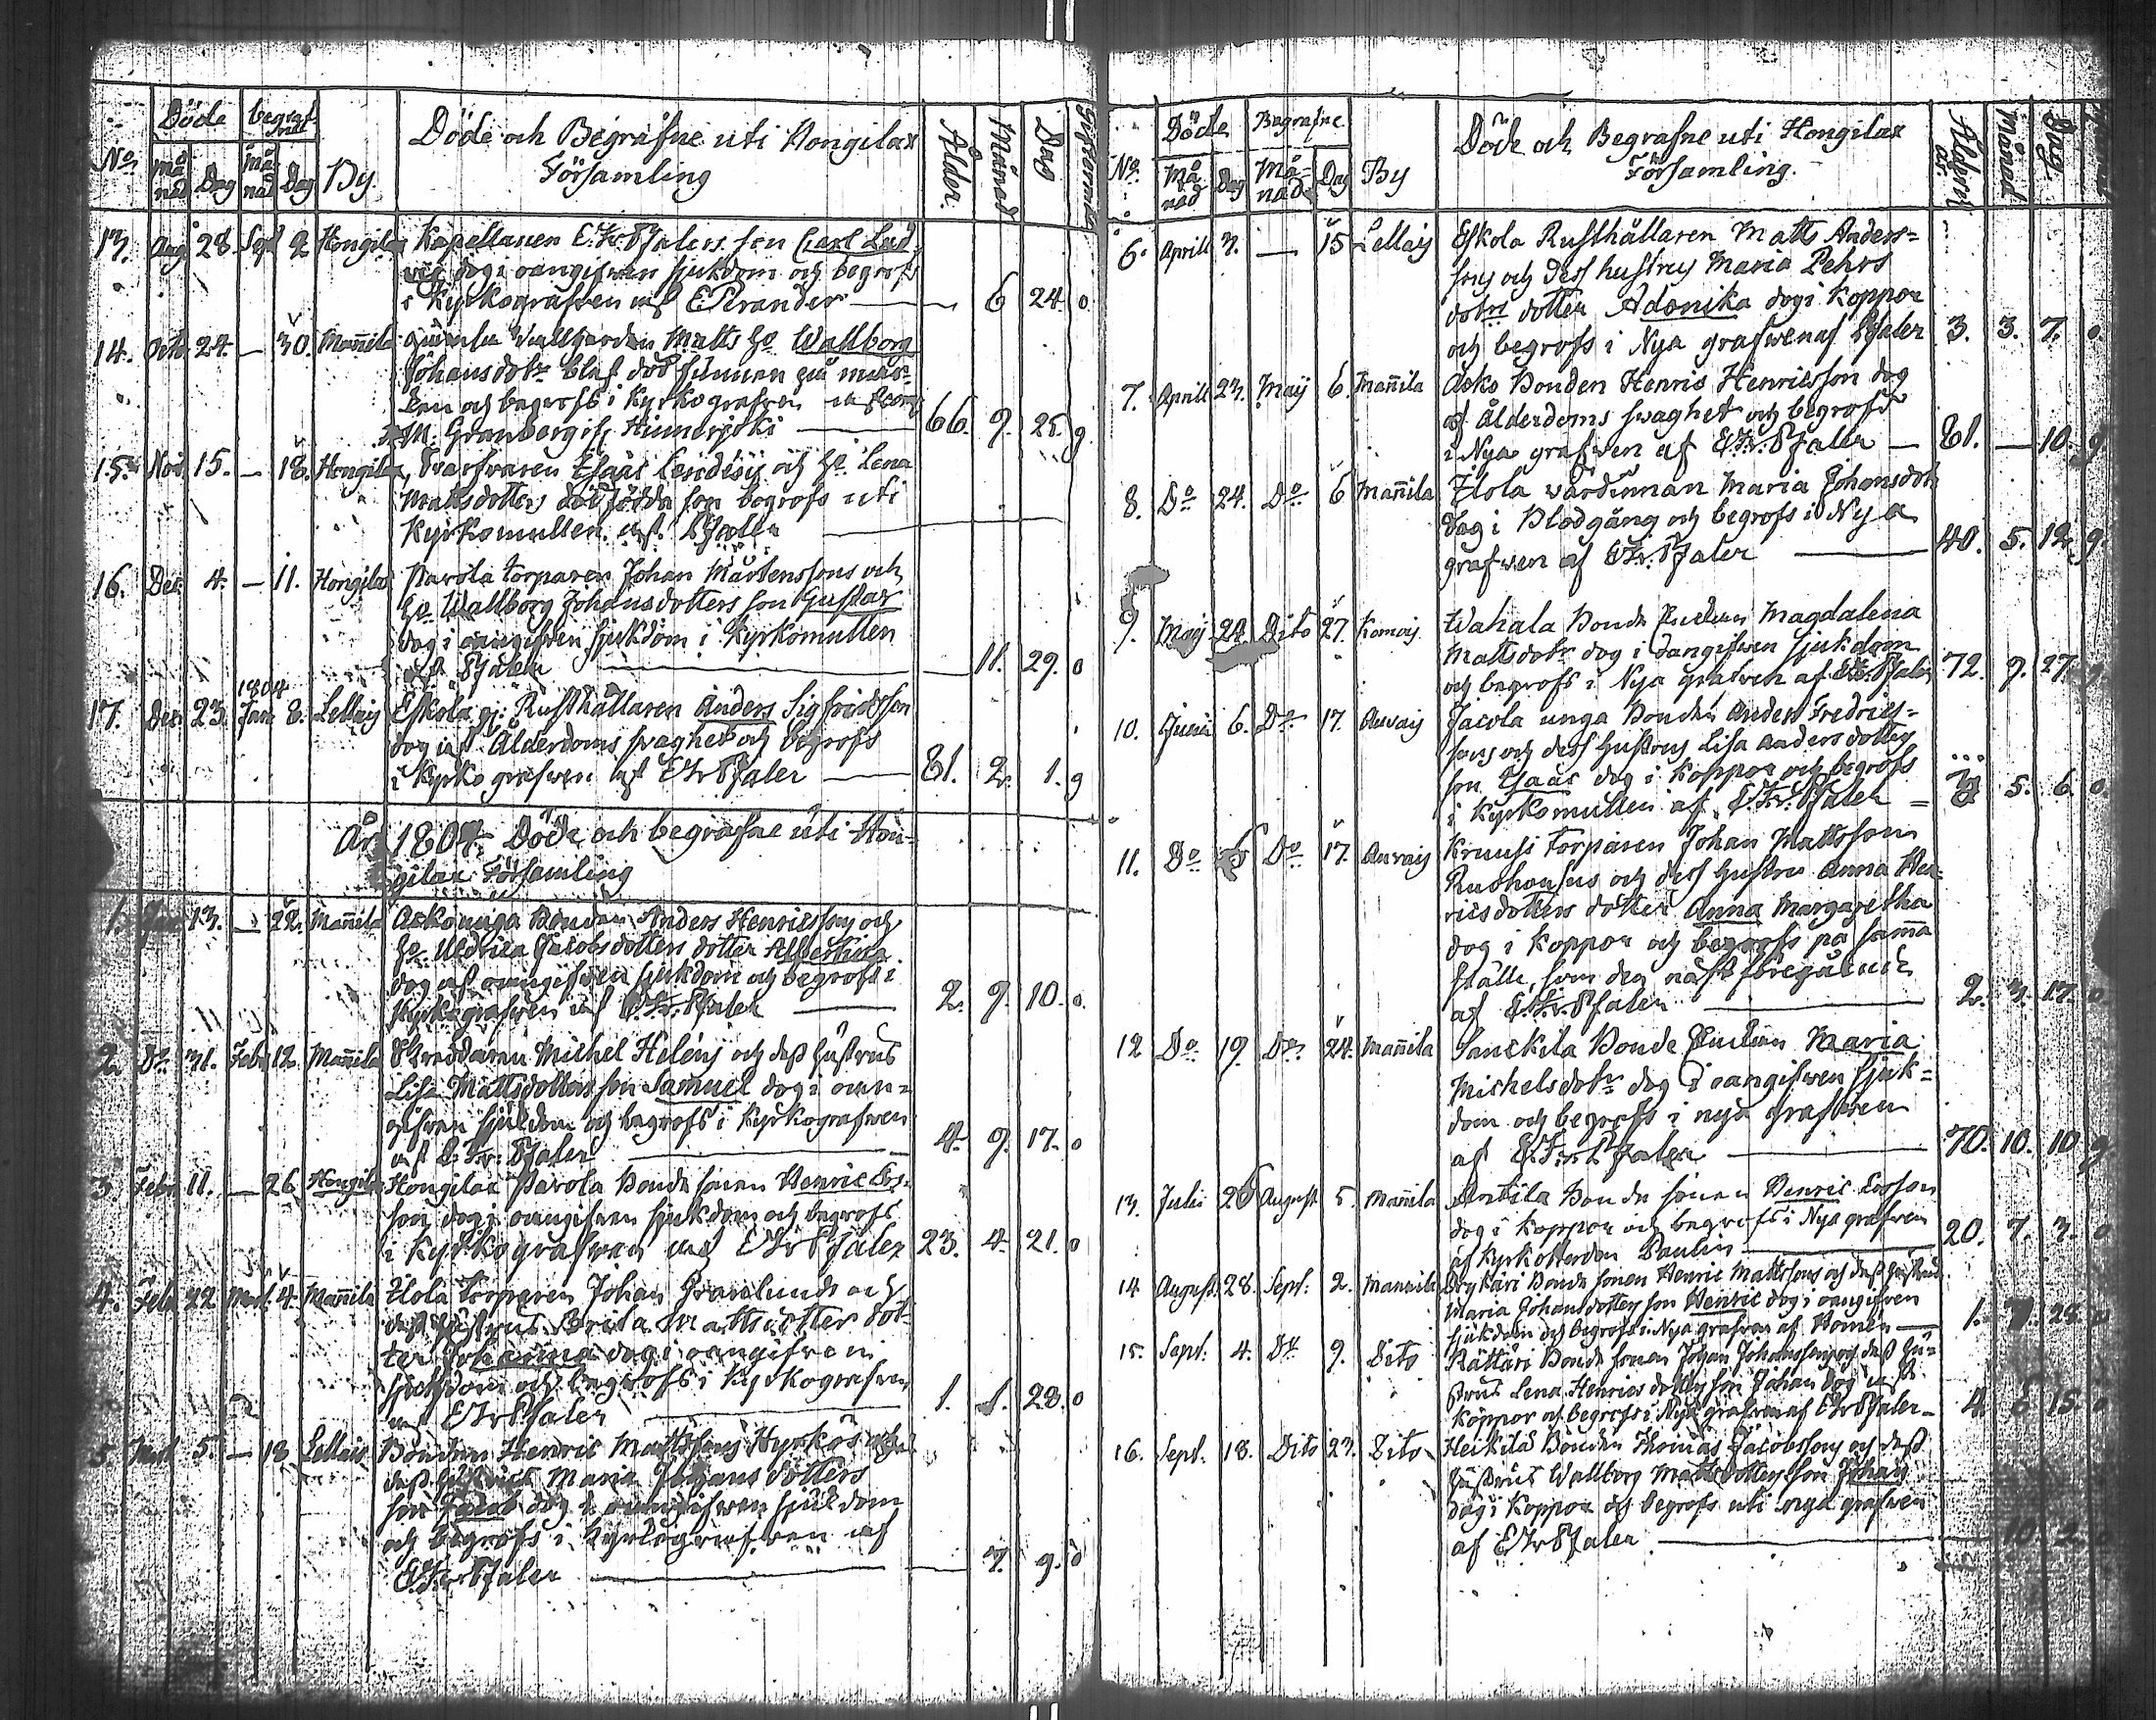 Döde begraf
ne
Döde och Begrafne uti Hongilax
Församling
No. Månad Dag Månad Dag By. Ålder. Månad Dag
13. Aug 28. Sept 2 Hongilax Kapellanen E. Fr. Pfalers son Carl Lud-
vig dog i oangifven sjukdom och begrofs
i Kyrkografven af E Perander — 6 24. o
14. Octr 24. — 30. Mañila gamla Matts ho Wallborg
Johansdotr blef död
den och begrofs i Kyrkografven
M. Granberg Hinnerjoki — 66. 9. 25. g
15. Nov. 15. — 18. Hongilax, Svarfvaren Esaäc och ho Lena
Mattsdotters dödfödda son begrofs uti
Kyrkomullen. af. Pfaler
16. Dec. 4. — 11. Hongilax Parola torparen Johan Mårtenssons och
ho. Wallborg Johansdotters son Gustav
dog i oangifven sjukdom i Kyrkomullen
af Pfaler — 11. 29. o
1804
17. Dec. 23. Jan 8. Lellais Eskola gi. Rusthållaren Anders Sigfridsson
dog af Ålderdoms svaghet och begrofs
i Kyrko grafven af E Fr Pfaler — 81. 2. 1. g
År 1804. Döde och begrafne uti Hon-
gilax Församling
1. 13. — 22. Mañila Asko unga Bonden Anders Henricssons och
ho. Uldrica Jacobsdotters dotter Albertina
dog af oangifven sjukdom och begrofs i
Kyrkografven af E. Fr. Pfaler — 2. 9. 10. o.
2. Do. 31. Febr 12. Mañila Skreddaren Michel Heléns och deß hustrus
Lisa Mattsdotters son Samuel dog i oan-
gifven sjukdom och begrofs i Kyrkografven
af E. Fr: Pfaler — 4. 9. 17. o
3 Febr. 11. — 26 Hongilax Hongilax Parola Bonde sonen Henric Ers-
son dog i oangifven sjukdom och begrofs
i Kyrkografven af E Fr Pfaler 23. 4. 21. o
4. Febr 22 Mart. 4. Mañila Ilola Torparen Johan Granlunds och
deß hustrus Brita Mattsdotter dot-
ter Johanna dog i oangifven
sjukdom och begrofs i Kyrkografven
af E Fr Pfaler — 1. 1. 23. o
5 Mart 5. — 18. Lellais Bonden Henric Mattssons Hyrkös och
deß hustrus Maria Johansdotters
son Jacob dog i oangifven sjukdom
och begrofs i Kyrkografven af
E. Fr Pfaler — 7. 9. o
Döde Begrafne
Döde och Begrafne uti Hongilax
Församling.
No. Månad Dag Månad Dag By Åldern år Månad Dag.
6. Aprill 3. — 15 Lellais Eskola Rusthållaren Matts Anders-
sons och dess hustrus Maria Pehrs
dotrs dotter Adonika dog i Koppor
och begrofs i Nya grafwen af Pfaler 3. 3. 7. o.
7. Aprill 23. Maij 6. Mañila Asko Bonden Henric Henricsson dog
af Ålderdoms svaghet och begrofs
i Nya grafven af E. Fr. Pfaler — 81. — 10. g.
8. Do 24. Do 6 Mañila Ilola värdinnan Maria Johansdotr
dog i Blodgång och begrofs i Nya
grafwen af E Fr. Pfaler — 40. 5. 12. g.
9. Maij 24. Dito 27. Komois Wahala Bonde Enckan Magdalena
Mattsdotr dog i oangifven sjukdom
och begrofs i Nya grafven af E Fr. Pfaler 72. 9. 27.
10. Junii 6. Do. 17. Auvais Jacola unga Bonden Anders Fredrics-
sons och dess hustrus Lisa Andersdotters
son Isaäc dog i Koppor och begrofs
i Kyrkomullen af E. Fr. Pfaler — 5. 6. o
11. Do 6 Do. 17. Auvais Kruusi Torparen Johan Mattsson
och dess hustrus Anna Hen-
ricsdotters dotter Anna Margaretha
dog i Koppor och begrofs på samma
ställe, som den näst föregående
af E. Fr. Pfaler — 2. 3. 17. o
12 Do. 19. Do. 24. Mañila Sanckila Bonde Enckan Maria
Michelsdotr dog i oangifwen sjuk-
dom och begrofs i nya grafwen
af E. Fr. Pfaler — 70. 10. 10 g
13. Julii 26 August 5. Mañila Anttila Bonde sonen Henric Ersson
dog i Koppor och begrofs i Nya grafven
af Kyrkoherden Paulin — 20. 7. 3. o
14 August. 28. Sept. 2. Mannila Bonde sonen Henric Mattssons och deß hustrus
Maria Johansdotters son Henric dog i oangifven
sjukdom och begrofs i Nya grafven af Homén — 1. 28. o
15. Sept. 4. Do. 9. Dito Rättäri Bonde sonen Johan Johanssons och deß hu-
strus Lena Henricsdotters son Johan dog i
Koppor och begrofs i Nya grafven af E Fr Pfaler — 4. 15. o
16. Sept. 18. Dito 23. Dito Heikilä Bonden Thomas Jacobssons och deß
hustrus Wallborg Mattsdotters son Johan
dog i Koppor och begrofs uti nya grafven
af E Fr Pfaler — 10. 2.